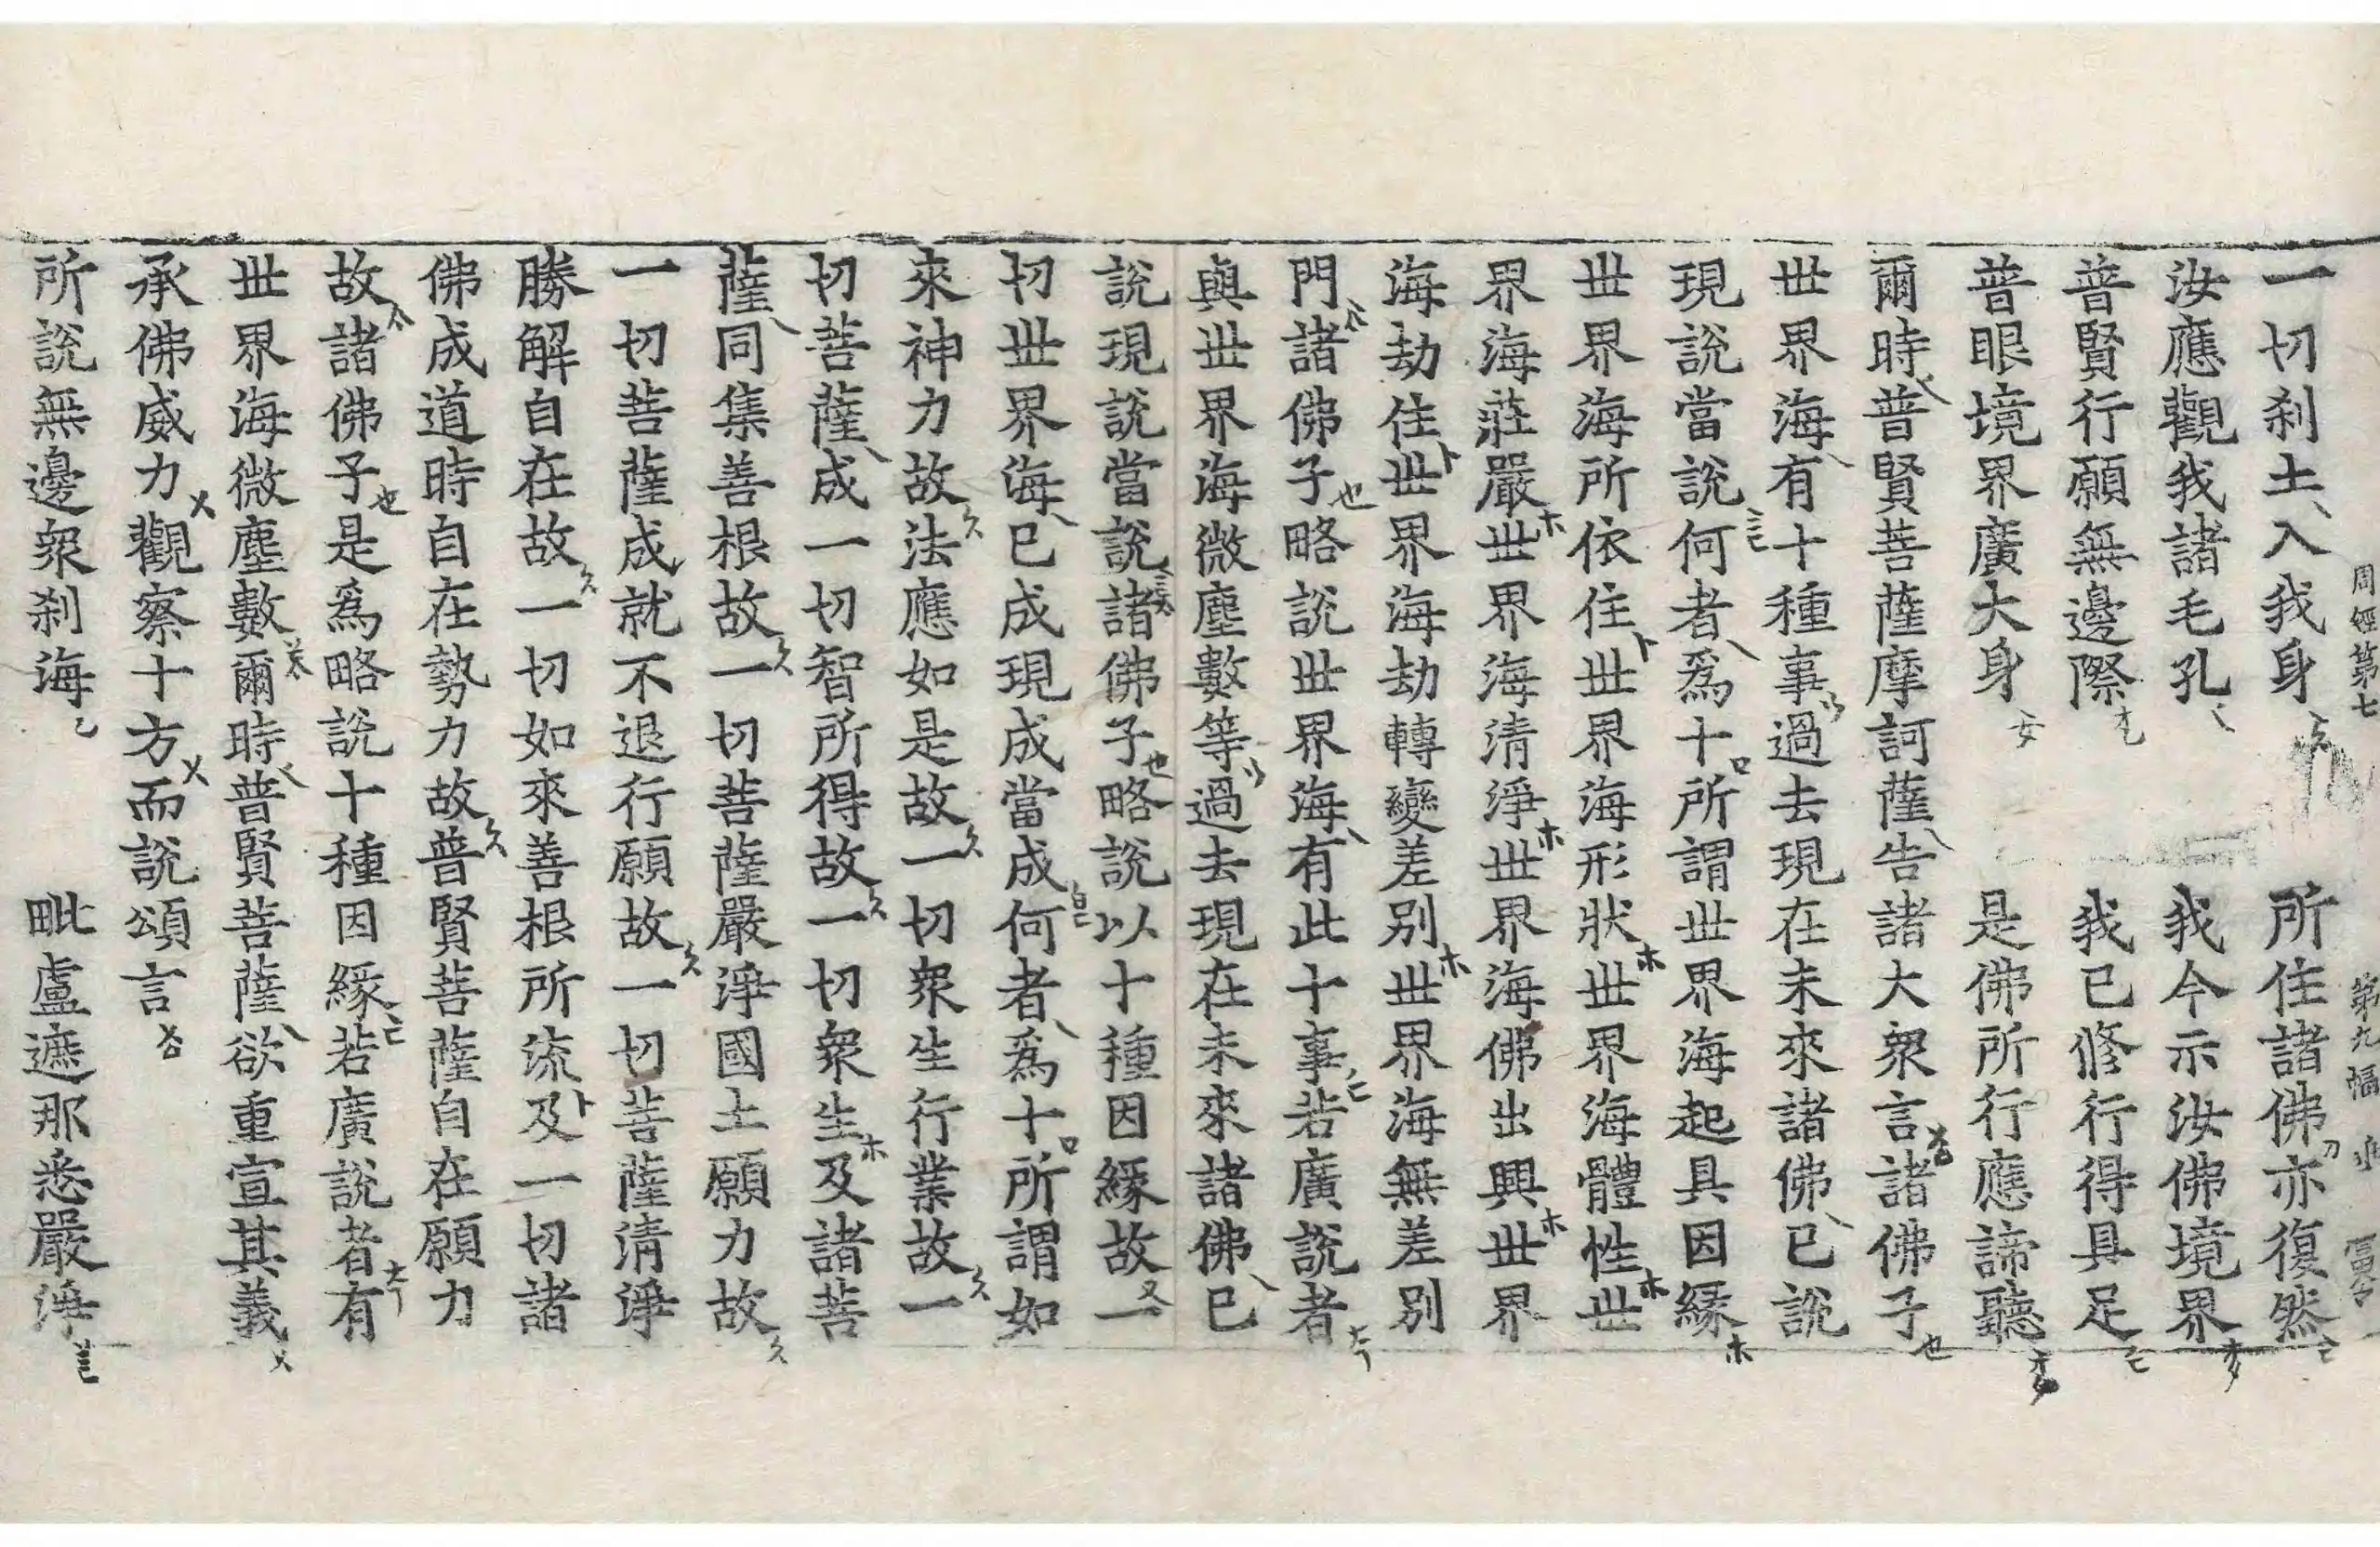 周經第七 第九幅
一切刹土入我身 所住諸佛亦復然
汝應觀我諸毛孔 我今示汝佛境界
普賢行願無邊際 我已修行得具足
普眼境界廣大身 是佛所行應諦聽
爾時普賢菩薩摩訶薩告諸大衆言諸佛子
世界海有十種事過去現在未來諸佛已說
現說當說何者爲十所謂世界海起具因緣
世界海所依住世界海形狀世界海體性世
界海莊嚴世界海清淨世界海佛出興世界
海劫住世界海劫轉變差別世界海無差別
門諸佛子略說世界海有此十事若廣說者
與世界海微塵數等過去現在未來諸佛已
說現說當說諸佛子略說以十種因緣故一
切世界海已成現成當成何者爲十所謂如
來神力故法應如是故一切衆生行業故一
切菩薩成一切智所得故一切衆生及諸菩
薩同集善根故一切菩薩嚴淨國土願力故
一切菩薩成就不退行願故一切菩薩清淨
勝解自在故一切如來善根所流及一切諸
佛成道時自在勢力故普賢菩薩自在願力
故諸佛子是爲略說十種因緣若廣說者有
世界海微塵數爾時普賢菩薩欲重宣其義
承佛威力觀察十方而說頌言
所說無邊衆刹海 毗盧遮那悉嚴淨